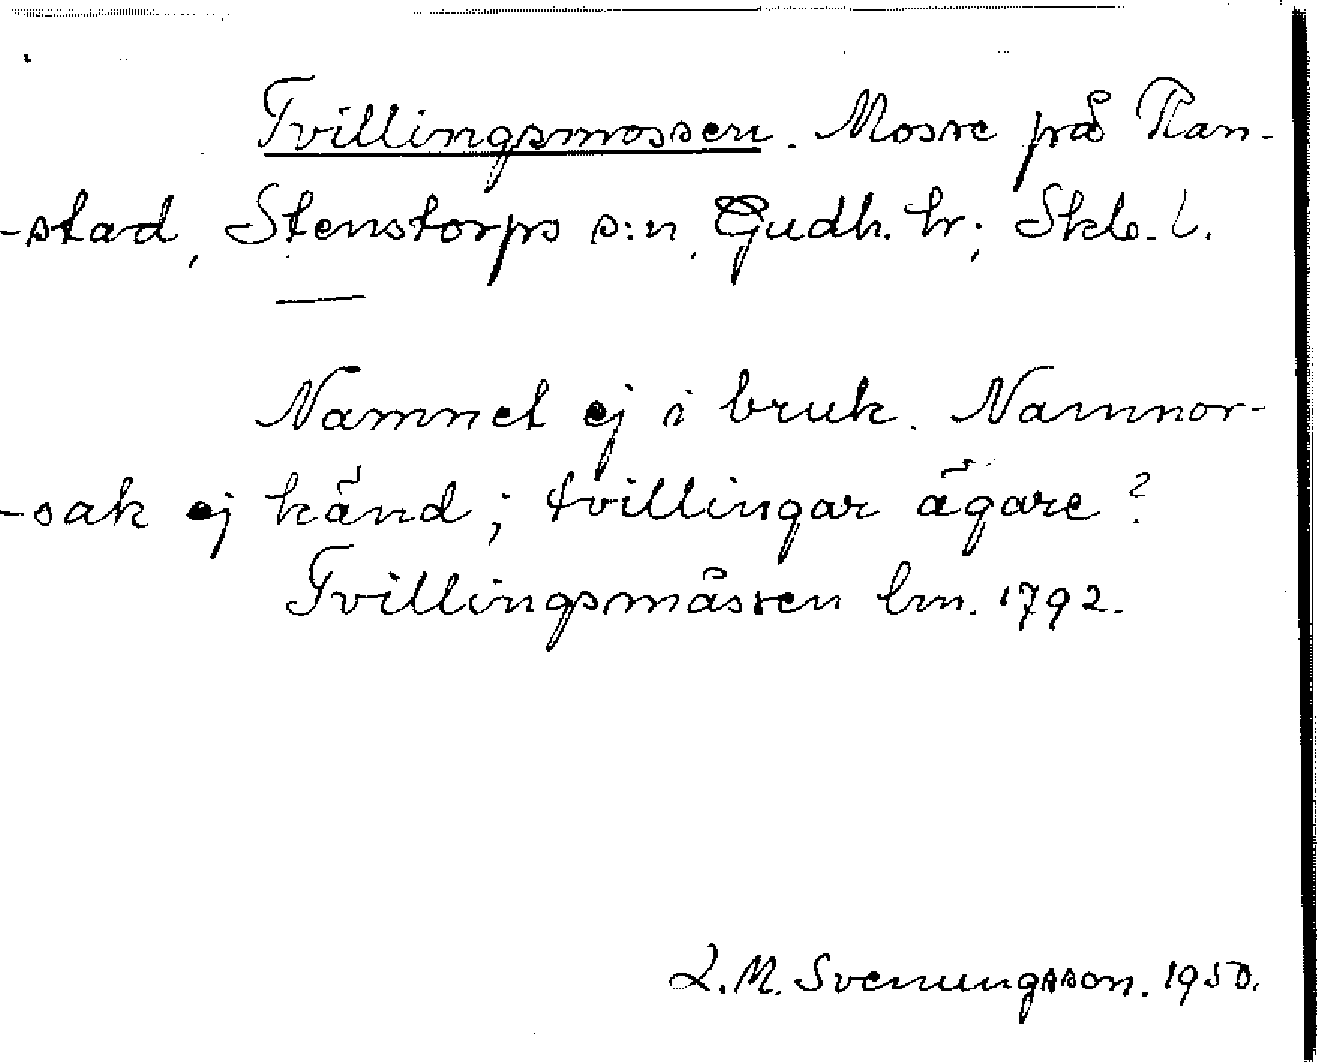 Tvillingsmossen. Mosse på Ran-
-stad, Stenstorps s:n, Gudh. hr; Skb. l.
Namnet ej i bruk. Namnor-
-sak ej känd; tvillingar ägare?
Tvillingsmåssen lm. 1792.
L.M. Svenungsson. 1950.